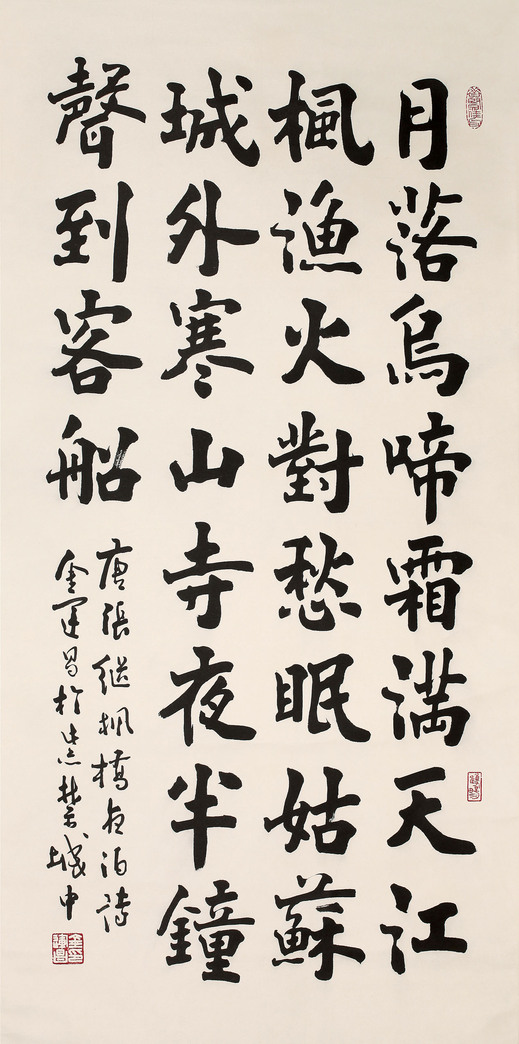 月落烏啼霜滿天江
楓漁火對愁眠姑蘇
城外寒山寺夜半鐘
聲到客船
唐張繼楓橋夜泊詩
金運昌於紫禁城中